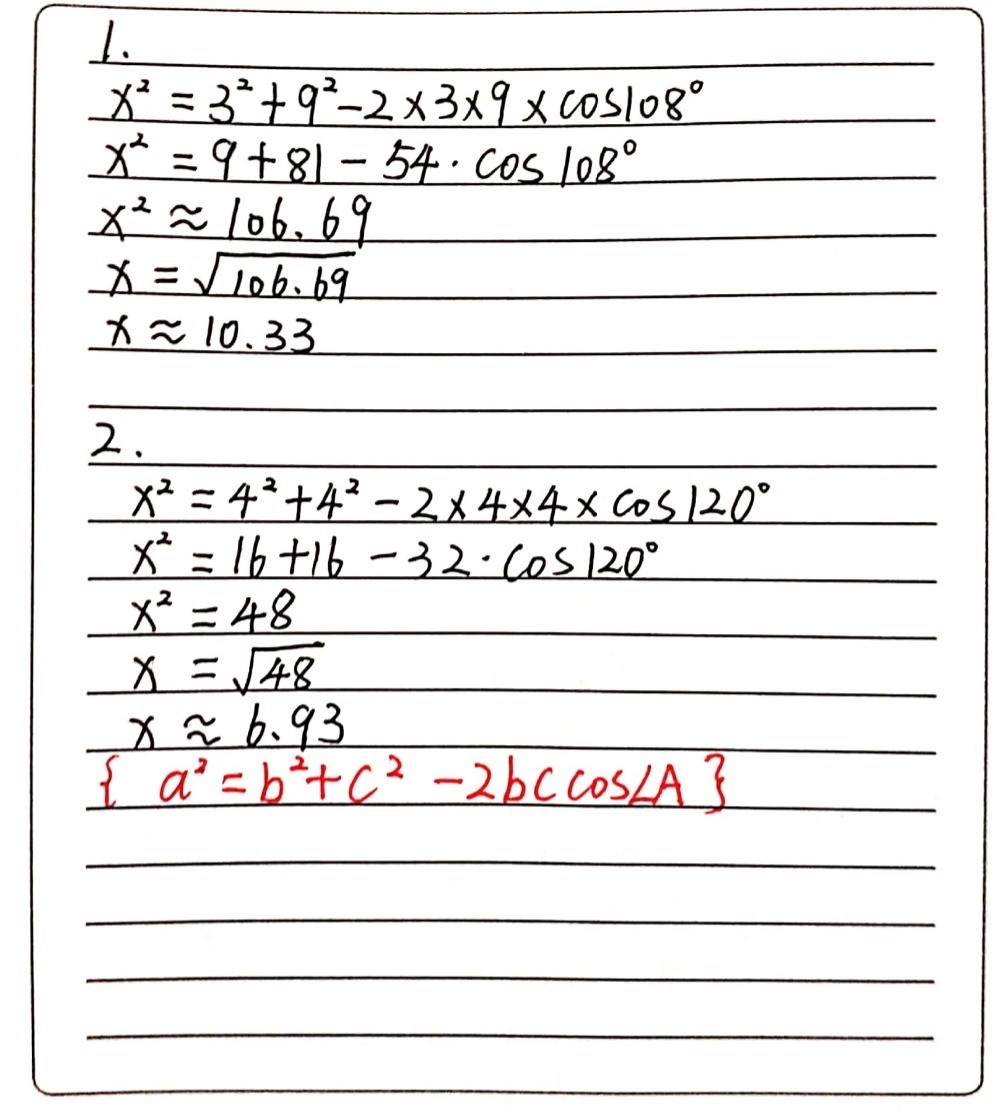 1.
x² = 3² + 9² - 2 × 3 × 9 × cos108°
x² = 9 + 81 - 54 · cos 108°
x² ≈ 106.69
x = √106.69
x ≈ 10.33
2.
x² = 4² + 4² - 2 × 4 × 4 × cos 120°
x² = 16 + 16 - 32 · cos 120°
x² = 48
x = √48
x ≈ 6.93
{ a² = b² + c² - 2bc cos∠A }